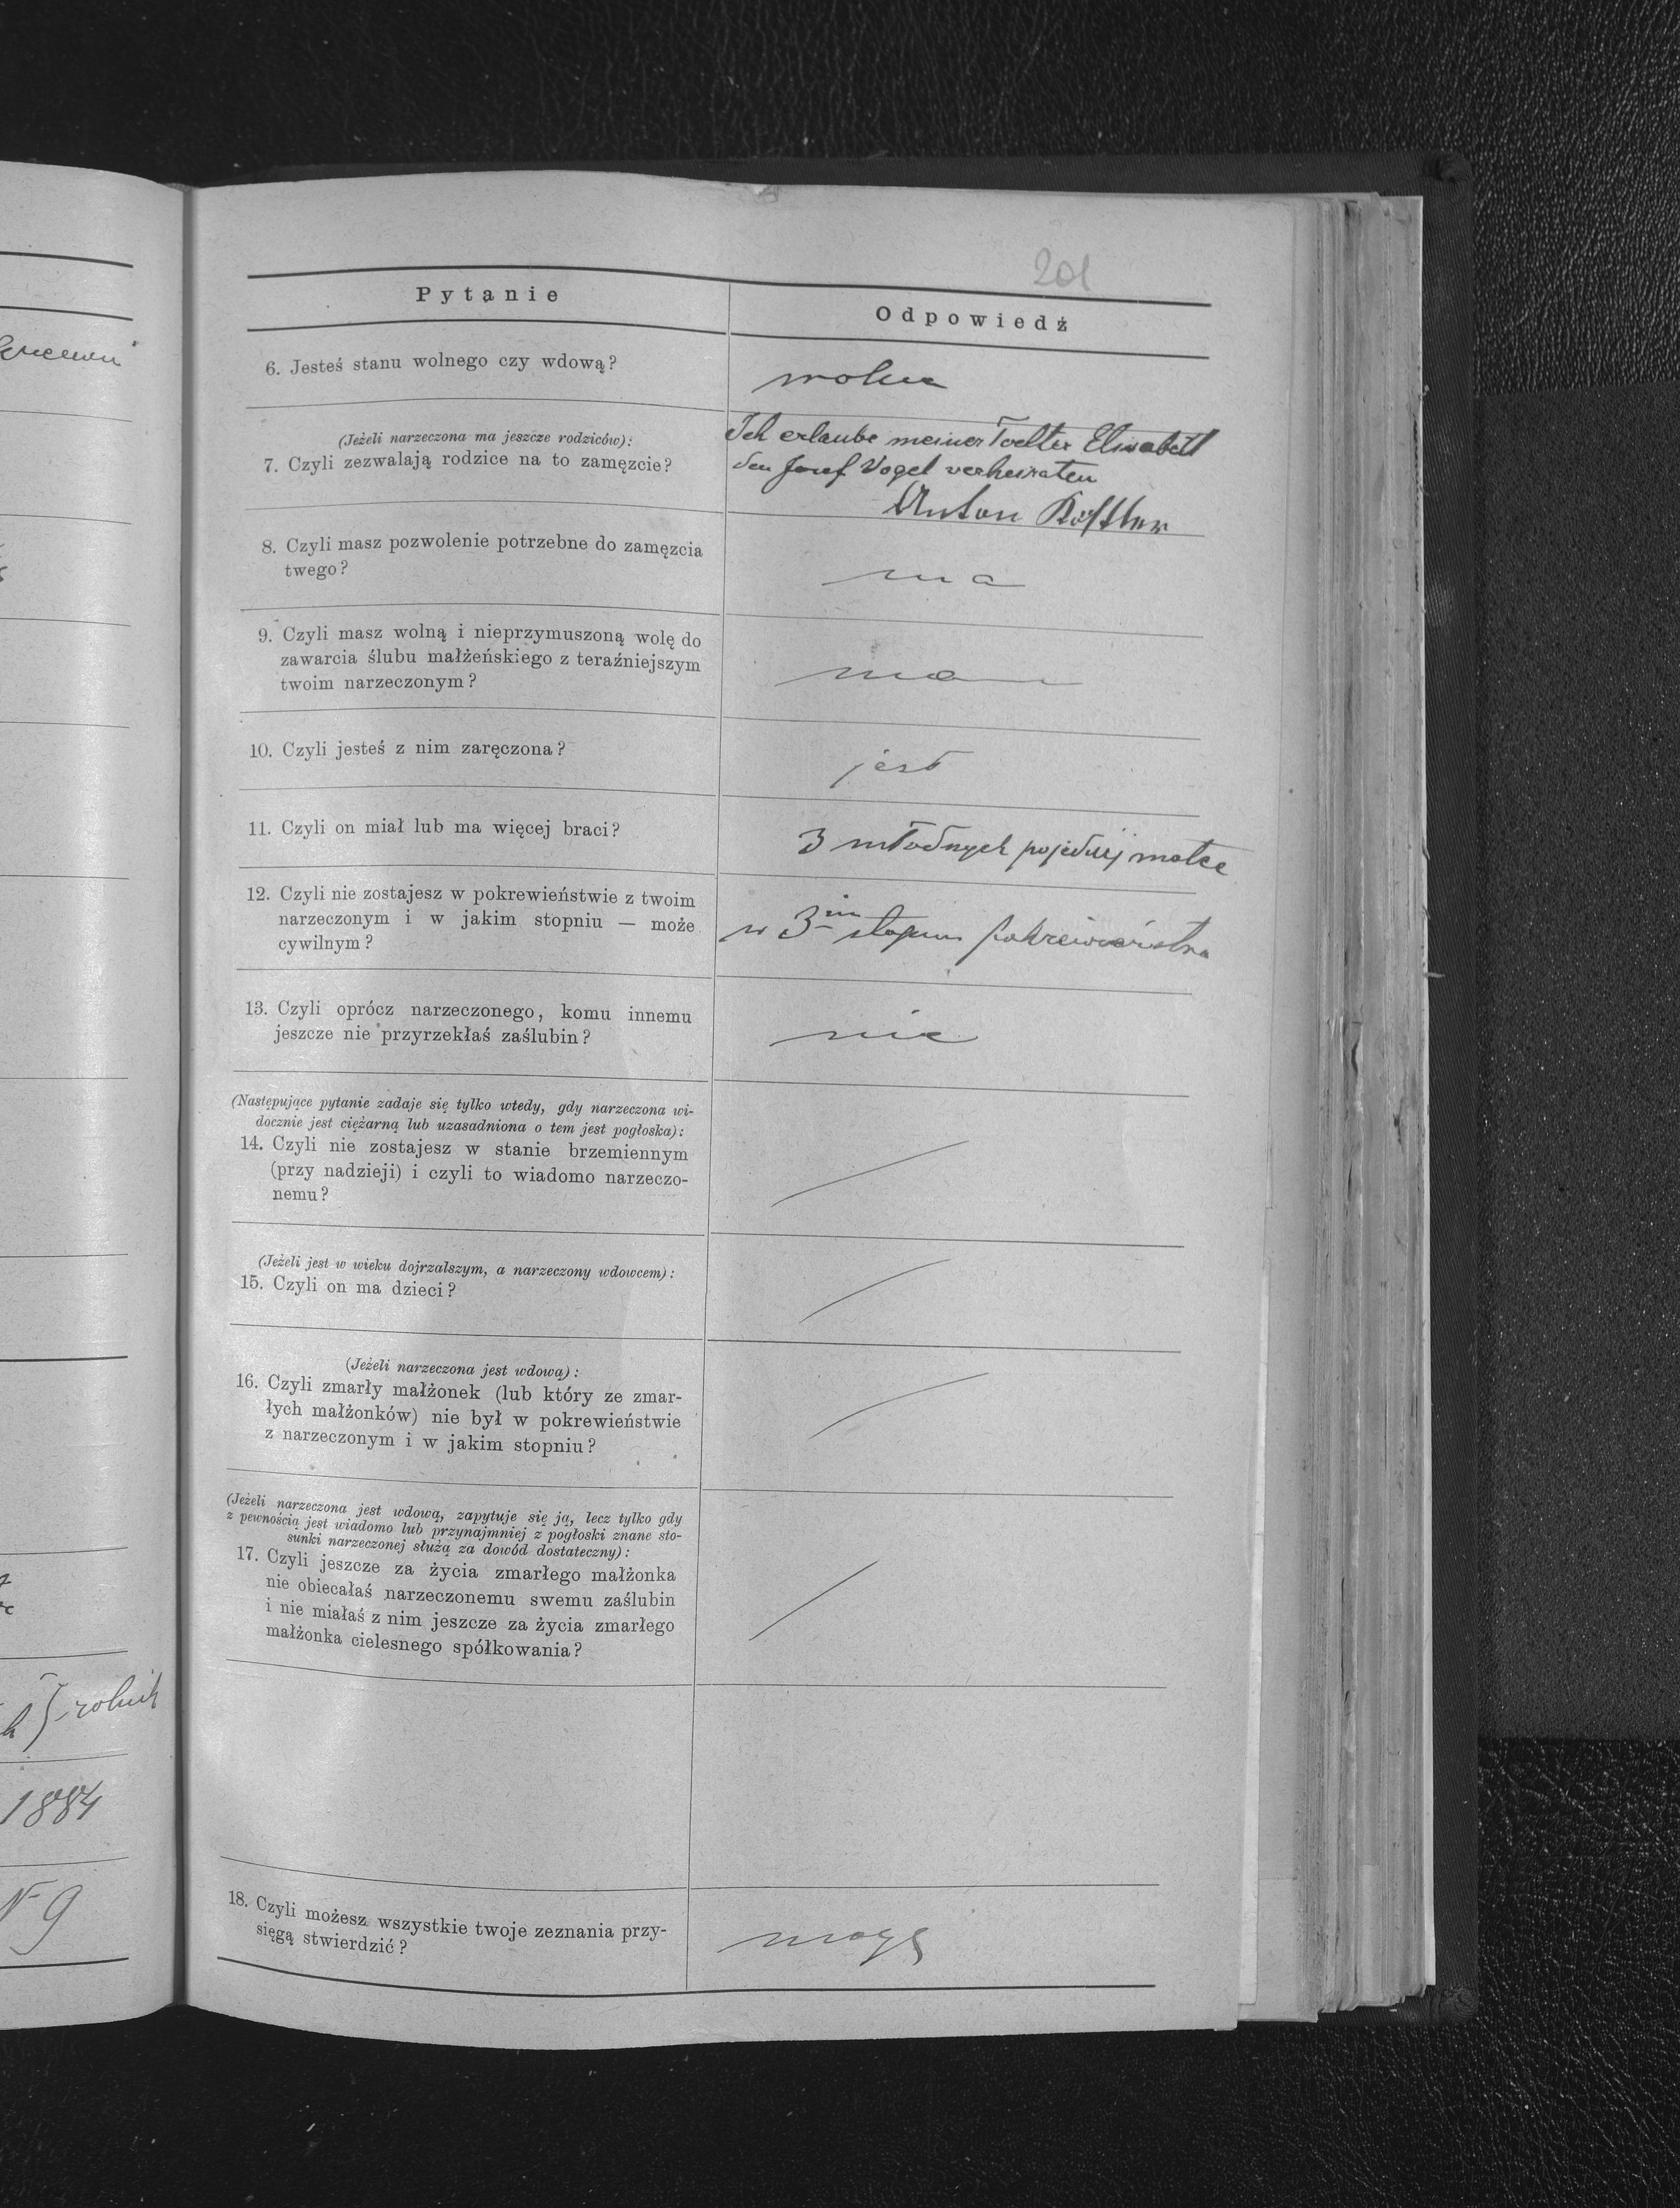 201
Pytanie
Odpowiedź
6. Jesteś stanu wolnego czy wdową?
wolna
(Jeżeli narzeczona ma jeszcze rodziców):
7. Czyli zezwalają rodzice na to zamęzcie?
Ich erlaube meiner Tochter Elisabeth
den Josef Vogel verheiraten
Anton
8. Czyli masz pozwolenie potrzebne do zamęzcia
twego?
ma
9. Czyli masz wolną i nieprzymuszoną wolę do
zawarcia ślubu małżeńskiego z teraźniejszym
twoim narzeczonym?
mam
10. Czyli jesteś z nim zaręczona?
jest
11. Czyli on miał lub ma więcej braci?
3 młodszych po jednej matce
12. Czyli nie zostajesz w pokrewieństwie z twoim
narzeczonym i w jakim stopniu — może
cywilnym?
w 3im stopniu pokrewieństwa
13. Czyli oprócz narzeczonego, komu innemu
jeszcze nie przyrzekłaś zaślubin?
nie
(Następujące pytanie zadaje się tylko wtedy, gdy narzeczona wi-
docznie jest ciężarną lub uzasadniona o tem jest pogłoska):
14. Czyli nie zostajesz w stanie brzemiennym
(przy nadzieji) i czyli to wiadomo narzeczo-
nemu?
(Jeżeli jest w wieku dojrzalszym, a narzeczony wdowcem):
15. Czyli on ma dzieci?
(Jeżeli narzeczona jest wdową):
16. Czyli zmarły małżonek (lub który ze zmar-
łych małżonków) nie był w pokrewieństwie
z narzeczonym i w jakim stopniu?
(Jeżeli narzeczona jest wdową, zapytuje się ją, lecz tylko gdy
z pewnością jest wiadomo lub przynajmniej z pogłoski znane sto-
sunki narzeczonej służą za dowód dostateczny):
17. Czyli jeszcze za życia zmarłego małżonka
nie obiecałaś narzeczonemu swemu zaślubin
i nie miałaś z nim jeszcze za życia zmarłego
małżonka cielesnego spółkowania?
rolnik
1884
N 9
18. Czyli możesz wszystkie twoje zeznania przy-
sięgą stwierdzić?
mogę